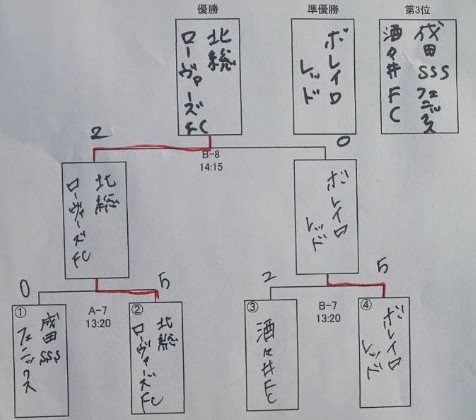 優勝
準優勝
第3位
北総
ローヴァーズFC
ボレイロ
レッド
成田SSSフェニックス
酒々井FC
2
0
B-8
14:15
北総
ローヴァーズFC
ボレイロ
レッド
0
5
2
5
A-7
13:20
B-7
13:20
①
成田SSS
フェニックス
②
北総
ローヴァーズFC
③
酒々井FC
④
ボレイロ
レッド